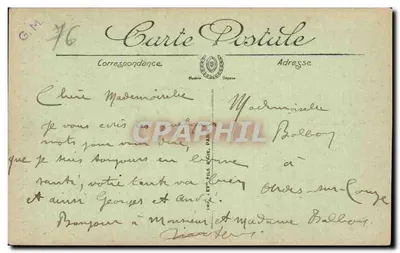 G.M.
76
Carte Postale
Correspondence
Adresse
Chère Mademoiselle
Mademoiselle
Je vous écris
mots pour vous dire,
que je suis toujours en bonne
à
santé, votre tante va bien
sur
Et aussi Georges et André.
Bonjour à Monsieur et Madame
CPAPHIL